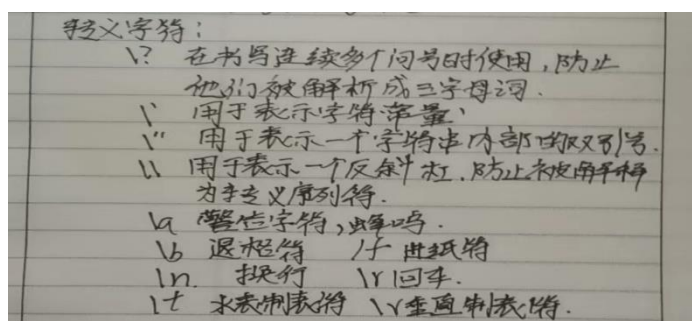 转义字符:
\? 在书写连续多个问号时使用,防止
他们被解析成三字母词.
\' 用于表示字符常量'
\" 用于表示一个字符串内部的双引号.
\\ 用于表示一个反斜杠,防止被解释
为转义序列符.
\a 警告字符,蜂鸣.
\b 退格符 /f 进纸符
\n. 换行 \r回车.
\t 水表制表符 \v垂直制表符.